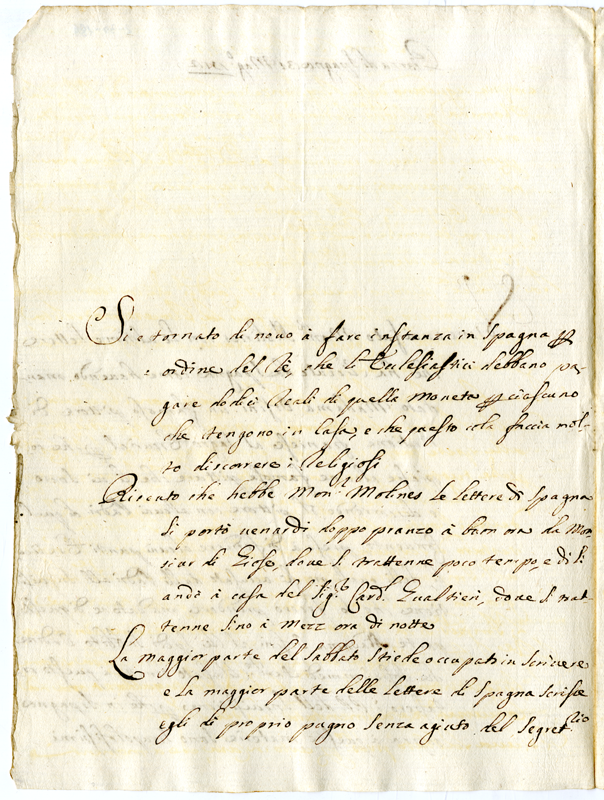 Si e tornato di novo à fare instanza in Spagna per
ordine del Rè, che li Eclesiastici debbano pa-
gare dodici Reali di quella moneta per ciascuno
che tengono in Casa, e che questo cola faccia mol-
to discorrere i Religiosi
Riceuto che hebbe Mons.r Molines le lettere di Spagna
si portò venardi doppo pranzo à bon ora da Mon-
siar di Giose, dove si trattenne poco tempo, e di li
andò à casa del Sig.r Card.l Gualtieri, dove si trat-
tenne sino à mezz ora di notte
La maggior parte del Sabbato stiede occupato in scrivere
e la maggior parte delle lettere di Spagna scrisse
egli di proprio pugno senza agiuto del Segret.rio